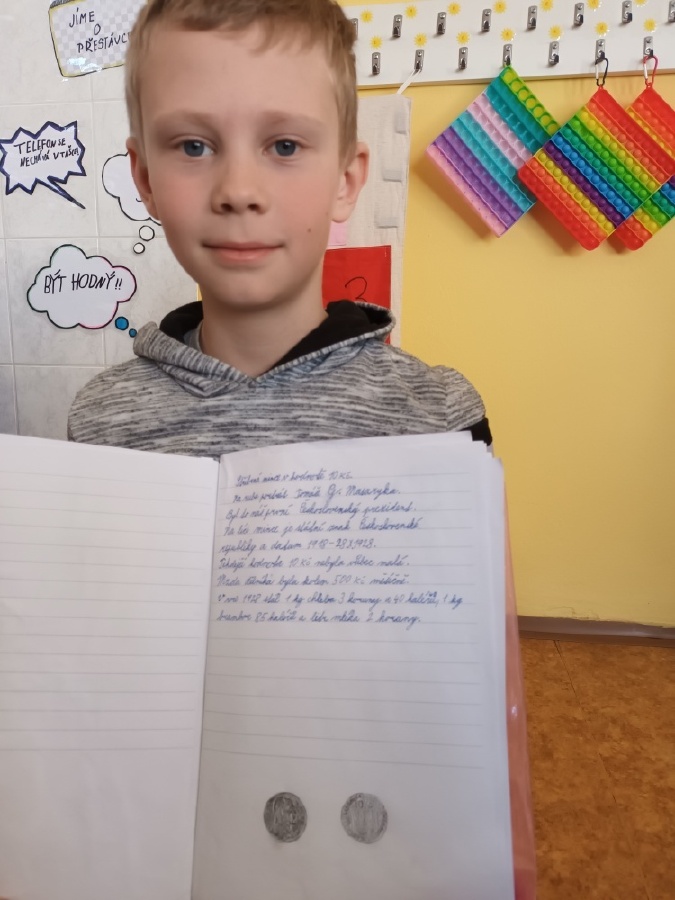 JÍME
O
PŘESTÁVCE
TELEFON SE
NECHÁVÁ V TAŠCE!
BÝT HODNÝ!!
3
mince v hodnotě 10 Kč.
Na rubu portrét Tomáš G. Masaryka.
Byl to náš první Československý prezident.
Na líci mince je státní znak Československé
republiky a datum 1918-28.X.1928.
Tehdejší hodnota 10 Kč nebyla vůbec malá.
Mzda dělníka byla kolem 500 Kč měsíčně.
V roce 1928 stál 1 kg chleba 3 koruny a 40 haléřů, 1 kg
brambor 85 haléřů a litr mléka 2 koruny.